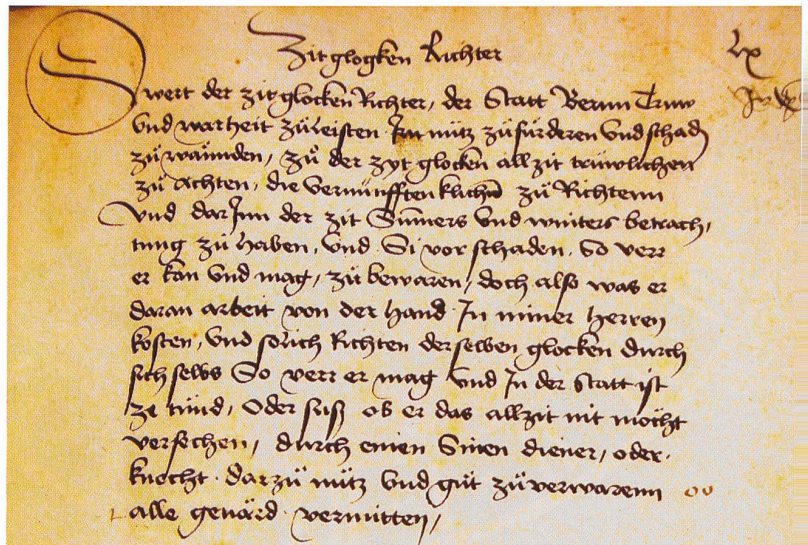 Zitglogken Richter
lx
Swert der zitglocken Richter, der Statt Bernn Truw
Vnd warheit zůleisten Jrn nütz zůfürderen Vnd schad
zůwännden, zů der zyt glocken allzit trüwlichen
zů Achten, die vernünfftenklichen zů Richtenn
Vnd dar Jnn der zit Summers Vnd winters betrach,
tung zů haben, Vnd Si vor schaden, So verr
er kan Vnd mag, zů bewaren, doch also was er
daran arbeit von der hand Jn miner herren
kosten, Vnd sölich Richten derselben glocken durch
sich selbs So verr er mag Vnd Jn der Statt ist
ze tůnd, Oder sust ob er das allzit nit möcht
versechen, durch einen Sinen diener, oder
knecht darzů nütz Vnd gůt zůverwarenn
alle genärd vermitten,